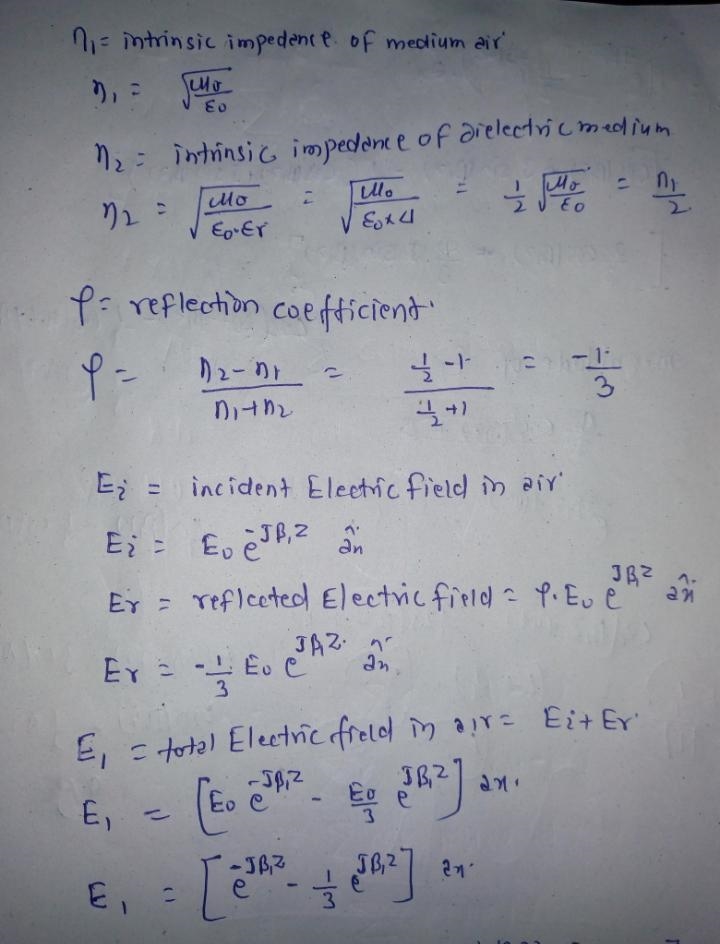 η₁ = intrinsic impedence of medium air
η₁ = √(μ₀/ε₀)
η₂ = intrinsic impedence of dielectric medium
η₂ = √(μ₀/(ε₀·εr)) = √(μ₀/(ε₀×4)) = 1/2 √(μ₀/ε₀) = η₁/2
ρ = reflection coefficient.
ρ = (η₂-η₁)/(η₁+η₂) = (1/2 -1)/(1/2 +1) = -1/3
Ei = incident Electric field in air
Ei = E₀ e^(-Jβ₁z) âx
Er = reflected Electric field = ρ.E₀ e^(Jβ₁z) âx
Er = -1/3 E₀ e^(Jβ₁z) âx
E₁ = total Electric field in air = Ei+Er
E₁ = [E₀ e^(-Jβ₁z) - E₀/3 e^(Jβ₁z)] ax.
E₁ = [e^(-Jβ₁z) - 1/3 e^(Jβ₁z)] ax.